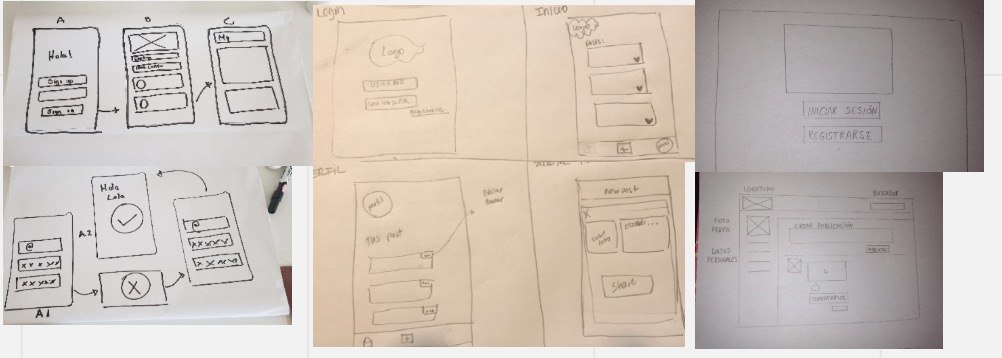 A
B
C
Hola!
Sign up
Sign in
My
Hola
Lola
@
xxxxx
xxxxx
A1
A2
@
xxxxx
xxxxx
Login
Logo
usuario
Registrate
Inicio
Logo
Posts:
+
perfil
perfil
Mis post
Editar
Borrar
+
New Post
X
subir
foto
escribir...
Share
INICIAR SESIÓN
REGISTRARSE
LOGOTIPO
BUSCADOR
FOTO
PERFIL
DATOS
PERSONALES
CREAR PUBLICACIÓN
PUBLICAR
COMENTARIOS